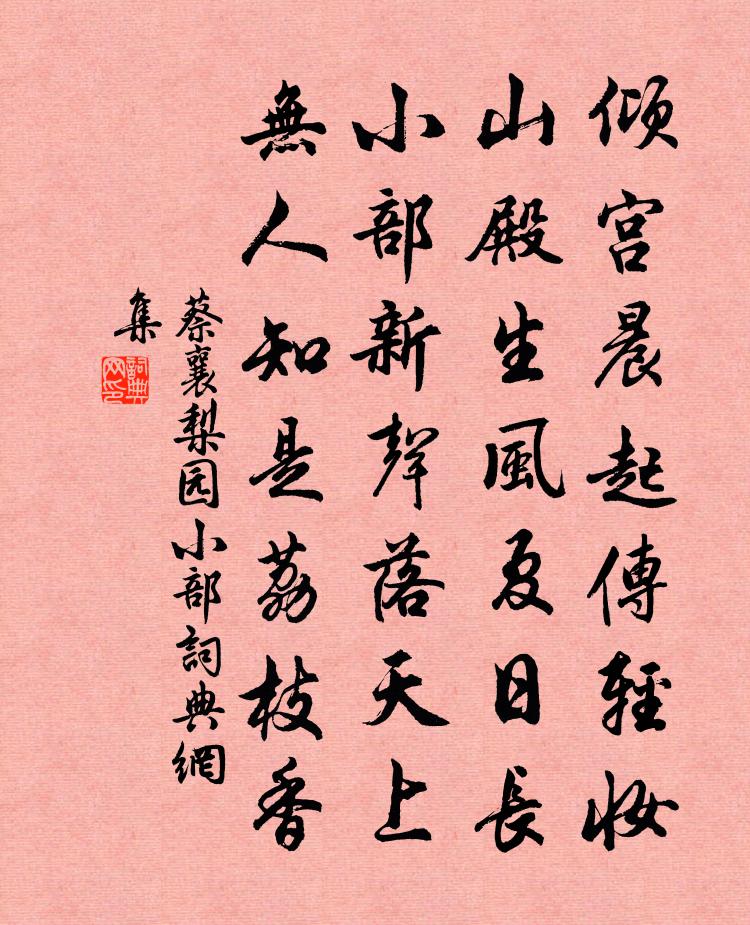 倾宫晨起傳輕妝
山殿生風夏日長
小部新聲落天上
無人知是荔枝香
蔡襄梨园小部詞典網
集
詞典网印